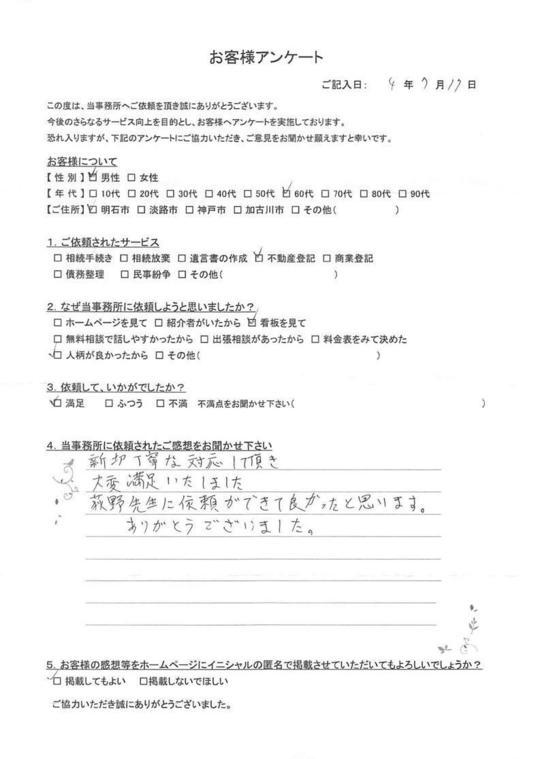 お客様アンケート
ご記入日: 4 年 7 月 17 日
この度は、当事務所へご依頼を頂き誠にありがとうございます。
今後のさらなるサービス向上を目的とし、お客様へアンケートを実施しております。
恐れ入りますが、下記のアンケートにご協力いただき、ご意見をお聞かせ願えますと幸いです。
お客様について
【 性 別 】 ☑ 男性 □ 女性
【 年 代 】 □ 10代 □ 20代 □ 30代 □ 40代 □ 50代 ☑ 60代 □ 70代 □ 80代 □ 90代
【ご住所】 ☑ 明石市 □ 淡路市 □ 神戸市 □ 加古川市 □ その他( )
1. ご依頼されたサービス
□ 相続手続き □ 相続放棄 □ 遺言書の作成 ☑ 不動産登記 □ 商業登記
□ 債務整理 □ 民事紛争 □ その他( )
2. なぜ当事務所に依頼しようと思いましたか?
□ ホームページを見て □ 紹介者がいたから ☑ 看板を見て
□ 無料相談で話しやすかったから □ 出張相談があったから □ 料金表をみて決めた
☑ 人柄が良かったから □ その他( )
3. 依頼して、いかがでしたか?
☑ 満足 □ ふつう □ 不満 不満点をお聞かせ下さい( )
4. 当事務所に依頼されたご感想をお聞かせ下さい
親切丁寧な対応して頂き
大変満足いたしました
荻野先生に依頼ができて良かったと思います。
ありがとうございました。
5. お客様の感想等をホームページにイニシャルの匿名で掲載させていただいてもよろしいでしょうか?
☑ 掲載してもよい □掲載しないでほしい
ご協力いただき誠にありがとうございました。